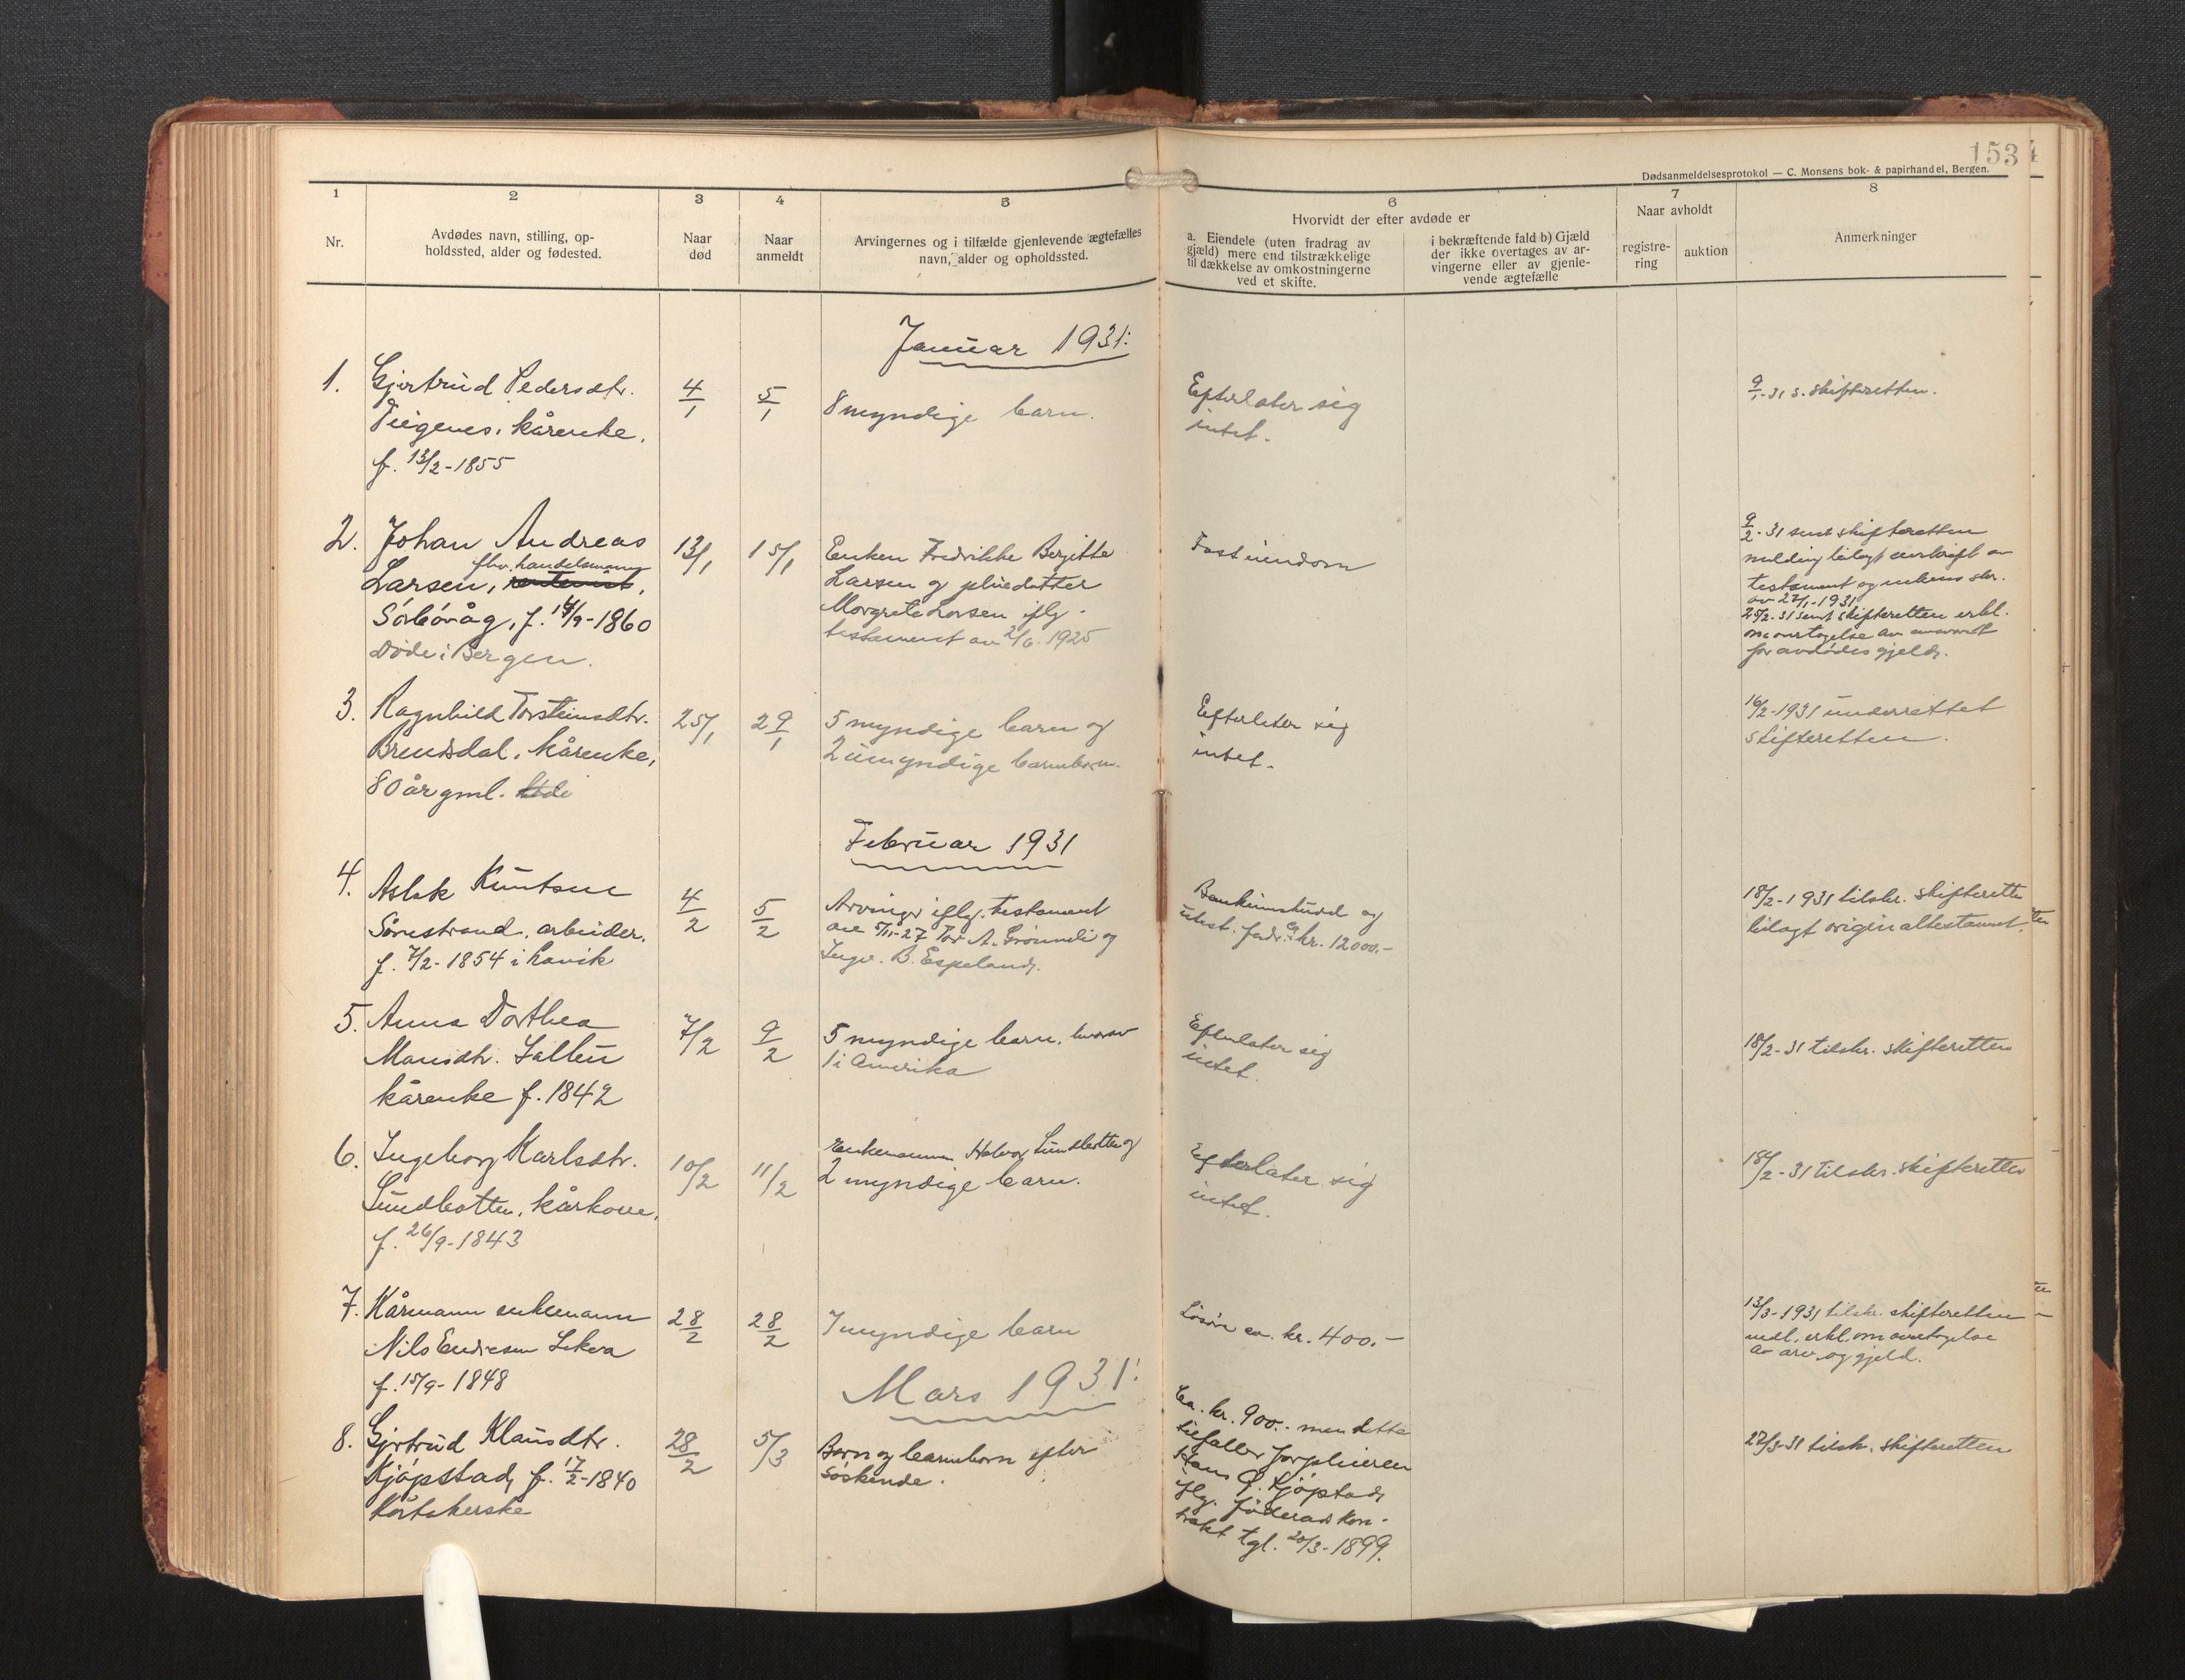 153
Dødsanmeldelsesprotokol — C. Monsens bok- & papirhandel, Bergen.
1
2
3
4
5
6
7
8
Nr.
Avdødes navn, stilling, op-
holdssted, alder og fødested.
Naar
død
Naar
anmeldt
Arvingernes og i tilfælde gjenlevende ægtefælles
navn, alder og opholdssted.
Hvorvidt der efter avdøde er
a. Eiendele (uten fradrag av
gjæld) mere end tilstrækkelige
til dækkelse av omkostningerne
ved et skifte.
i bekræftende fald b) Gjæld
der ikke overtages av ar-
vingerne eller av gjenle-
vende ægtefælle
Naar avholdt
registre-
ring
auktion
Anmerkninger
Januar 1931:
1.
Gjertrud Pedersdtr.
Teigenes, kårenke,
f. 13/2-1855
4/1
5/1
8 myndige barn.
Efterlater sig
intet.
9/1-31 s. skifteretten.
2.
Johan Andreas
fhv. handelsmann
Larsen, rentenist,
Sörbövåg, f. 14/9-1860
Döde i Bergen.
13/1
15/1
Enken Fredrikke Bergitte
Larsen og pleiedatter
Margrete Larsen iflg.
testament av 2/6 1925
Fast eiendom
9/2-31 sendt skifteretten
melding bilagt avskrift av
testament og enkens skr.
av 27/1-1931
25/2-31 sendt skifteretten erkl.
om overtagelse av ansvaret
for avdödes gjeld.
3.
Ragnhild Torsteinsdtr.
Brendsdal, kårenke,
80 år gml.
25/1
29/1
5 myndige barn og
2 umyndige barnebarn.
Efterlater sig
intet.
16/2-1931 underrettet
skifteretten.
Februar 1931
4.
Aslak Knutsen
Sörestrand, arbeider,
f. 7/2-1854 i Lavik
4/2
5/2
Arvinger iflg. testament
av 5/11-27 Tor A. Grönneli og
Ingv. B. Espeland.
Bankinnskudd og
utest. fordr. ca kr. 12000.-
18/2-1931 tilskr. skifterette
bilagt originaltestament.
5.
Anna Dorthea
Mansdtr. Salbu
kårenke f. 1842
7/2
9/2
5 myndige barn, hvorav
1 i Amerika
Efterlater sig
intet.
18/2-31 tilskr. skifteretten
6.
Ingeborg Karlsdtr.
Sundbotten, kårkone,
f. 26/9-1843
10/2
11/2
Enkemannen Halvor Sundbotten og
2 myndige barn.
Efterlater sig
intet.
18/2-31 tilskr. skifteretten
7.
Kårmann enkemann
Nils Endresen Lekva
f. 15/9-1848
28/2
28/2
7 myndige barn
Lösöre ca. kr. 400.-
13/3-1931 tilskr. skifteretten
vedl. erkl. om overtagelse
av arv og gjeld.
Mars 1931:
8.
Gjertrud Klausdtr.
Kjöpstad, f. 17/2-1840
Kårtakerske
28/2
5/3
Barn og barnebarn efter
söskende.
Ca. kr. 900.- men dette
tilfaller forpleieren
Hans G. Kjöpstad
iflg. föderadskon-
trakt tgl. 20/3-1899.
27/3-31 tilskr. skifteretten